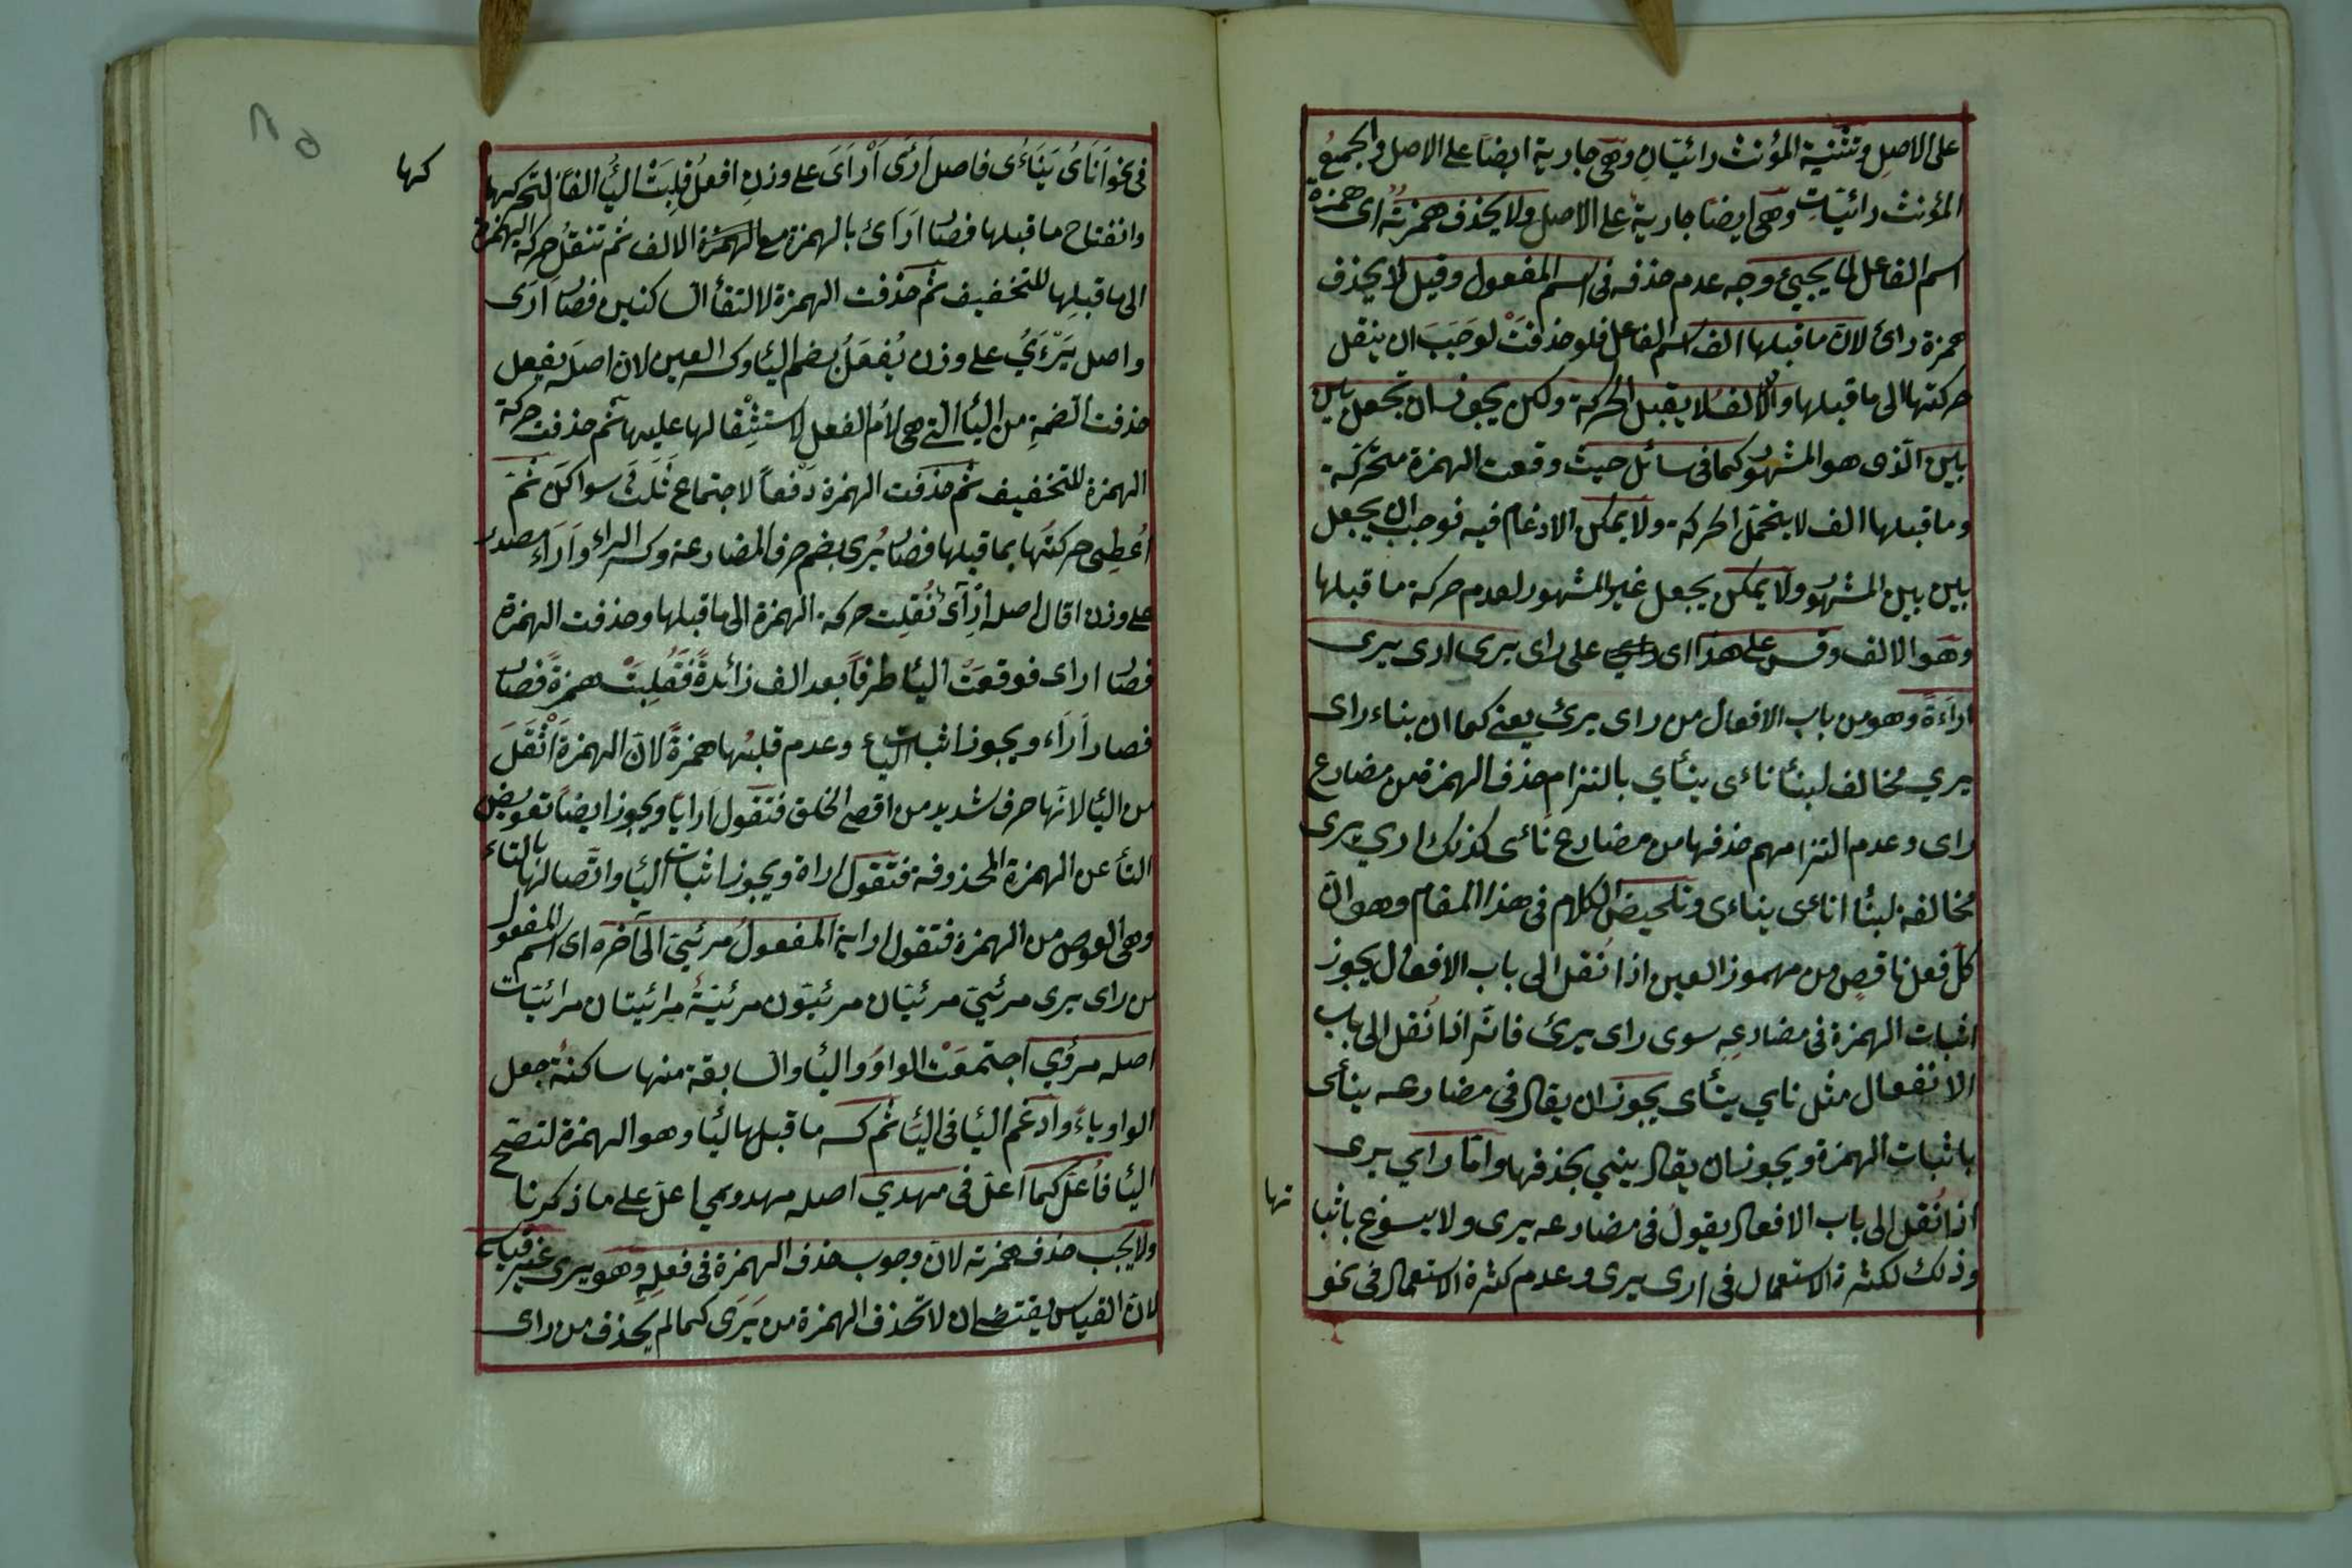 على الاصل وتثنية المؤنث رائيتان وهي جارية ايضا على الاصل والجميع
المؤنث رائيات وهي ايضا جارية على الاصل ولا يحذف همزته اى همزة
اسم الفاعل لما يجيئ وجه عدم حذفه فى اسم المفعول وقيل لا يحذف
همزة رائ لان ماقبلها الف اسم الفاعل فلو حذفت لوجب ان ينقل
حركتها الى ماقبلها والالف لا يقبل الحركة ولكن يجوز ان تجعل بين
بين الذى هو المشهور كما فى سائل حيث وقعت الهمزة متحركة
وما قبلها الف لا يتحمل الحركة ولا يمكن الادغام فيه فوجب ان يجعل
بين بين المشهور ولا يمكن يجعل غير المشهور لعدم حركة ما قبلها
وهو الالف وقس على هذا اى على راى يرى ارى يرى
اراءة وهو من باب الافعال من راى يرئ يعنى كما ان بناء راى
يري مخالف لبنا ناءى ينأي بالتزام حذف الهمزة من مضارع
راى وعدم التزامهم حذفها من مضارع نائى كذلك اري يرى
مخالفة لبنا اناءى يناءى وتلخيص الكلام فى هذا المقام وهو ان
كل فعل ناقص من مهموز العين اذا نقل الى باب الافعال يجوز
اثبات الهمزة فى مضارعه سوى راى يرئ فانه اذا نقل الى باب
الانفعال مثل ناي ينأى يجوز ان يقال فى مضارعه ينأى
باثبات الهمزة ويجوز ان يقال ينى بحذفها واما راي يرى
اذا نقل الى باب الافعال يقول فى مضارعه يرى ولا يسوغ باثبا
نها
وذلك لكثرة الاستعمال فى ارى يرى وعدم كثرة الاستعمال فى نحو
فى نحو اناى يناءى فاصل ارى ارأى على وزن افعل قلبت اليا الفا لتحركها
كها
وانفتاح ما قبلها فصار اراى بالهمزة مع الهمزة الالف ثم تنقل حركة الهمزة
الى ما قبلها للتخفيف ثم حذفت الهمزة لالتقأ الساكنين فصار ارى
واصل يرءي على وزن يفعل بضم اليا وكسر العين لان اصله يفعل
حذفت الضمة من اليا التى هى لام الفعل لاستثقالها عليها ثم حذفت حركة
الهمزة للتخفيف ثم حذفت الهمزة دفعا لاجتماع ثلث سواكن ثم
اعطى حركتها بما قبلها فصار يرى بضم حرف المضارعة وكسر الراء واراء مصدر
على وزن اقال اصله ارآى نقلت حركة الهمزة الى ما قبلها وحذفت الهمزة
فصار اراى فوقعت اليا طرفا بعد الف زائدة فقلبت همزة فصار
فصار اراء ويجوز اثبات الياء وعدم قلبها همزة لان الهمزة اثقل
من اليا لانها حرف شديد من اقصى الحلق فتقول ارايا ويجوز ايضا تعويض
التأ عن الهمزة المحذوفة فتقول اراة ويجوز اثبات اليا واتصالها بالتاء
وهى العوض من الهمزة فتقول اراية المفعول مرئي الى آخره اى اسم المفعول
من راى يرى مرئي مرئيان مرئيون مرئية مرائيتان مرائيات
اصله مرؤي اجتمعت الواو واليا والسابقة منها ساكنة جعل
الواو ياء وادغم اليا فى اليا ثم كسر ما قبلها ليا وهو الهمزة لتصح
اليا فاعل كما اعل فى مهدي اصله مهدوي اعل على ما ذكرنا
ولا يجب حذف همزته لان وجوب حذف الهمزة فى فعله وهو يرى غير قياس
لان القياس يقتضى ان لا تحذف الهمزة من يرى كما لم يحذف من راى